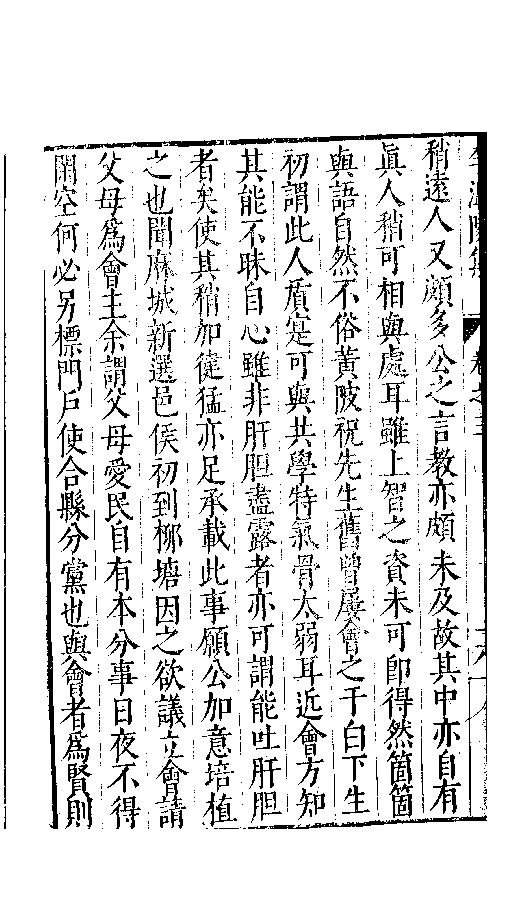 稍遠人又頗多公之言教亦頗未及故其中亦自有
眞人稍可相與處耳雖上智之資未可卽得然箇箇
與語自然不俗黃陂祝先生舊曾屢會之于白下生
初謂此人質寔可與共學特氣骨太弱耳近會方知
其能不昧自心雖非肝胆盡露者亦可謂能吐肝胆
者矣使其稍加徤猛亦足承載此事願公加意培植
之也聞麻城新選邑侯初到柳塘因之欲議立會請
父母爲會主余謂父母愛民自有本分事日夜不得
閑空何必另標門戶使合縣分黨也與會者爲賢則